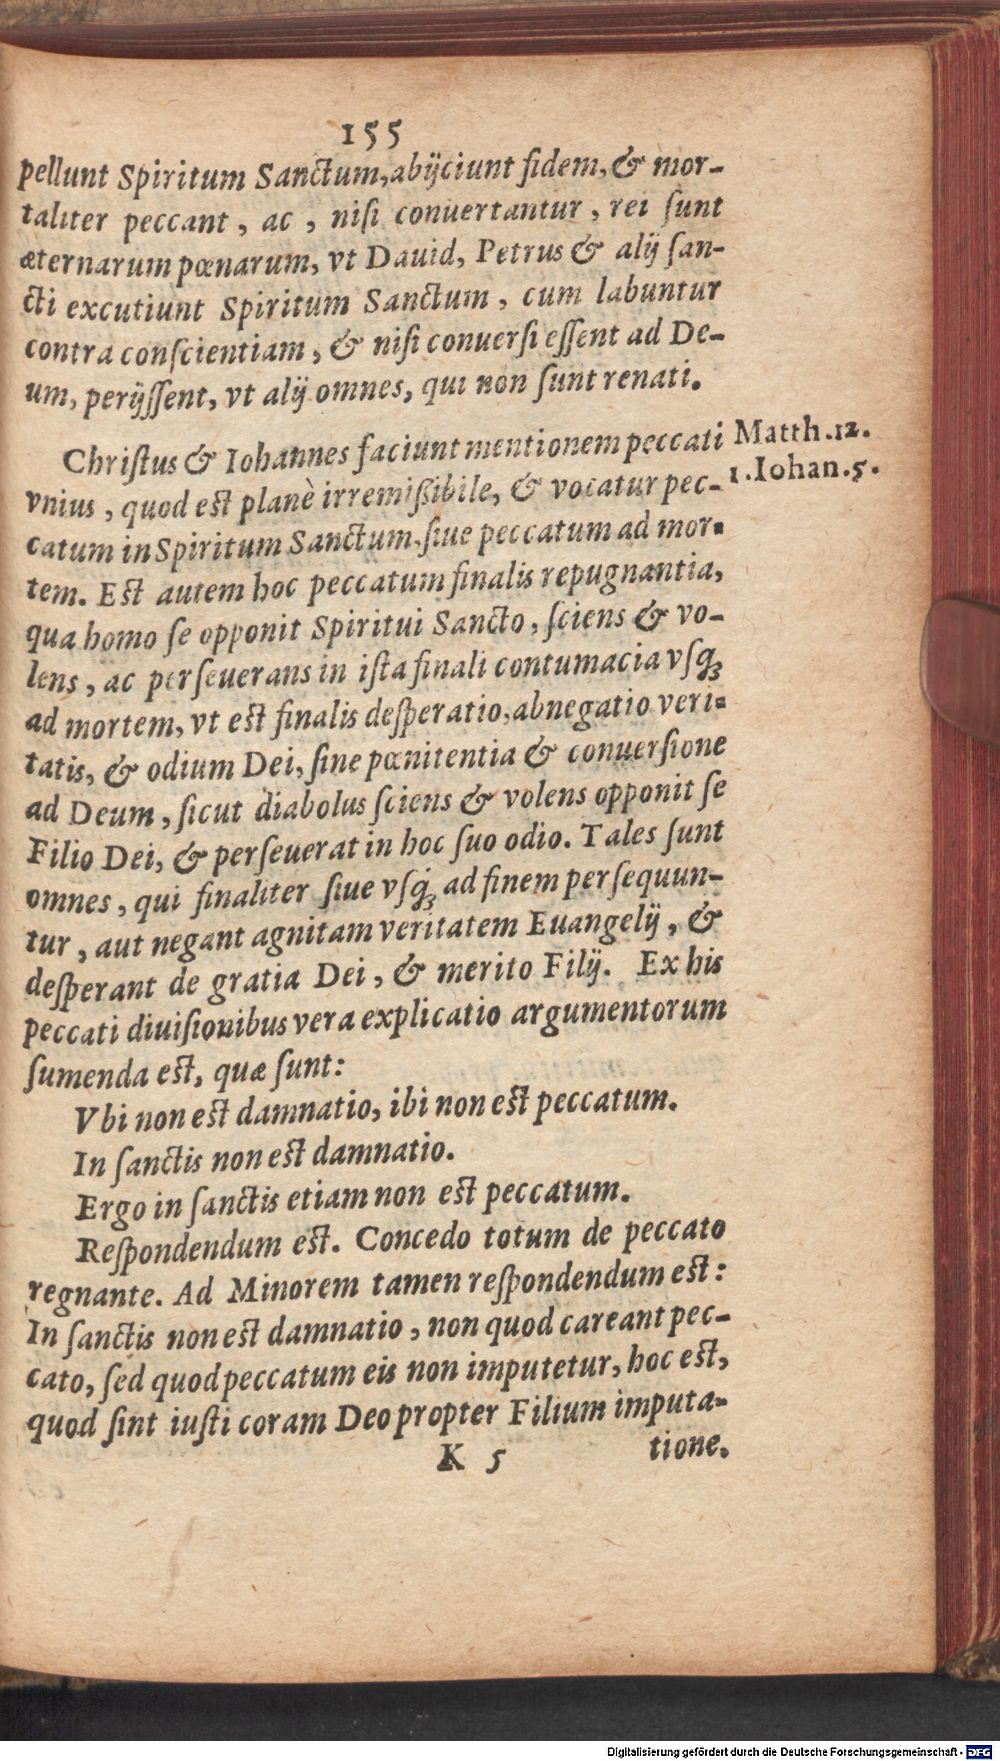 155
pellunt Spiritum Sanctum, abijciunt fidem, & mor-
taliter peccant, ac, nisi conuertantur, rei sunt
æternarum pœnarum, vt Dauid, Petrus & alij san-
cti excutiunt Spiritum Sanctum, cum labuntur
contra conscientiam, & nisi conuersi essent ad De-
um, perijssent, vt alij omnes, qui non sunt renati.
Christus & Iohannes faciunt mentionem peccati
Matth.12.
vnius, quod est planè irremißibile, & vocatur pec-
1.Iohan.5.
catum in Spiritum Sanctum, siue peccatum ad mor-
tem. Est autem hoc peccatum finalis repugnantia,
qua homo se opponit Spiritui Sancto, sciens & vo-
lens, ac perseuerans in ista finali contumacia vsq́ꝫ
ad mortem, vt est finalis desperatio, abnegatio veri-
tatis, & odium Dei, sine pœnitentia & conuersione
ad Deum, sicut diabolus sciens & volens opponit se
Filio Dei, & perseuerat in hoc suo odio. Tales sunt
omnes, qui finaliter siue vsq́ꝫ ad finem persequun-
tur, aut negant agnitam veritatem Euangelij, &
desperant de gratia Dei, & merito Filij. Ex his
peccati diuisionibus vera explicatio argumentorum
sumenda est, quæ sunt:
Vbi non est damnatio, ibi non est peccatum.
In sanctis non est damnatio.
Ergo in sanctis etiam non est peccatum.
Respondendum est. Concedo totum de peccato
regnante. Ad Minorem tamen respondendum est:
In sanctis non est damnatio, non quod careant pec-
cato, sed quod peccatum eis non imputetur, hoc est,
quod sint iusti coram Deo propter Filium imputa-
K 5
tione.
Digitalisierung gefördert durch die Deutsche Forschungsgemeinschaft - DFG